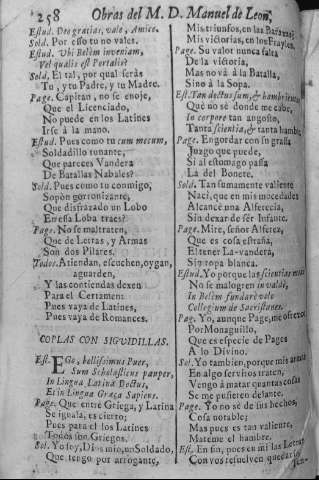 258 Obras del M. D. Manuel de Leon,
Estud. Deo gratias, vale, Amice.
Sold. Por esso tu no vales.
Estud. Ubi Belèm inveniam,
Vel qualis est Portalis?
Sold. El tal, por qual seràs
Tu, y tu Padre, y tu Madre.
Page. Capitan, no se enoje,
Que el Licenciado,
No puede en los Latines
Irse à la mano.
Estud. Pues como tu cum mecum,
Soldadillo tunante,
Que pareces Vandera
De Batallas Nabales?
Sold. Pues como tu conmigo,
Sopòn gorronizante,
Que disfrazado un Lobo
En essa Loba traes?
Page. No se maltraten,
Que de Letras, y Armas
Son dos Pilares.
Todos. Atiendan, escuchen, oygan,
aguarden,
Y las contiendas dexen
Para el Certamen:
Pues vaya de Latines,
Pues vaya de Romances.
COPLAS CON SIGUIDILLAS.
Est. EGo, bellissimus Puer,
Sum Scholasticus pauper,
In Lingua Latina Doctus,
Et in Lingua Graga Sapiens.
Page. Que entre Griega, y Latina
Se iguala, es cierto;
Pues para el los Latines
Todos son Griegos.
Sol. Yo soy, Dios mio, un Soldado,
Que tengo por arrogante,
Mis triunfos, en las
Mis victorias, en los Frayles.
Page. Su valor nunca falta
De la victoria,
Mas no và à la Batalla,
Sino à la Sopa.
Est. Tan doctus sum, & hambriento
Que no sè donde me cabe,
In corpore tan angosto,
Tanta scientia, & tanta hambre.
Page. Engordar con su grassa
Juzgo que puede,
Si al estomago passa
La del Bonete.
Sold. Tan sumamente valiente
Nacì, que en mis mocedades
Alcancè una Alferecia,
Sin dexar de sèr Infante.
Page. Mire, señor Alferez,
Que es cosa estraña,
El tener La-vandera,
Sin ropa blanca.
Estud. Yo porque las scientias
No se malogren in valdè,
In Belèm fundarè
Collegium de Sacristanes.
Page. Yo, aunque Page, me ofrezco
Por Monaguillo,
Que es especie de Pages
A lo Divino.
Sol. Yo tambien, porque mis
En algo servìros traten,
Vengo à matar quantas cosas
Se me pusieren delante.
Page. Yo no sè de sus hechos,
Cosa notable;
Mas pues es tan valiente,
Mateme el hambre.
Est. En fin, pues en mì las Letras
Con vos resuelven